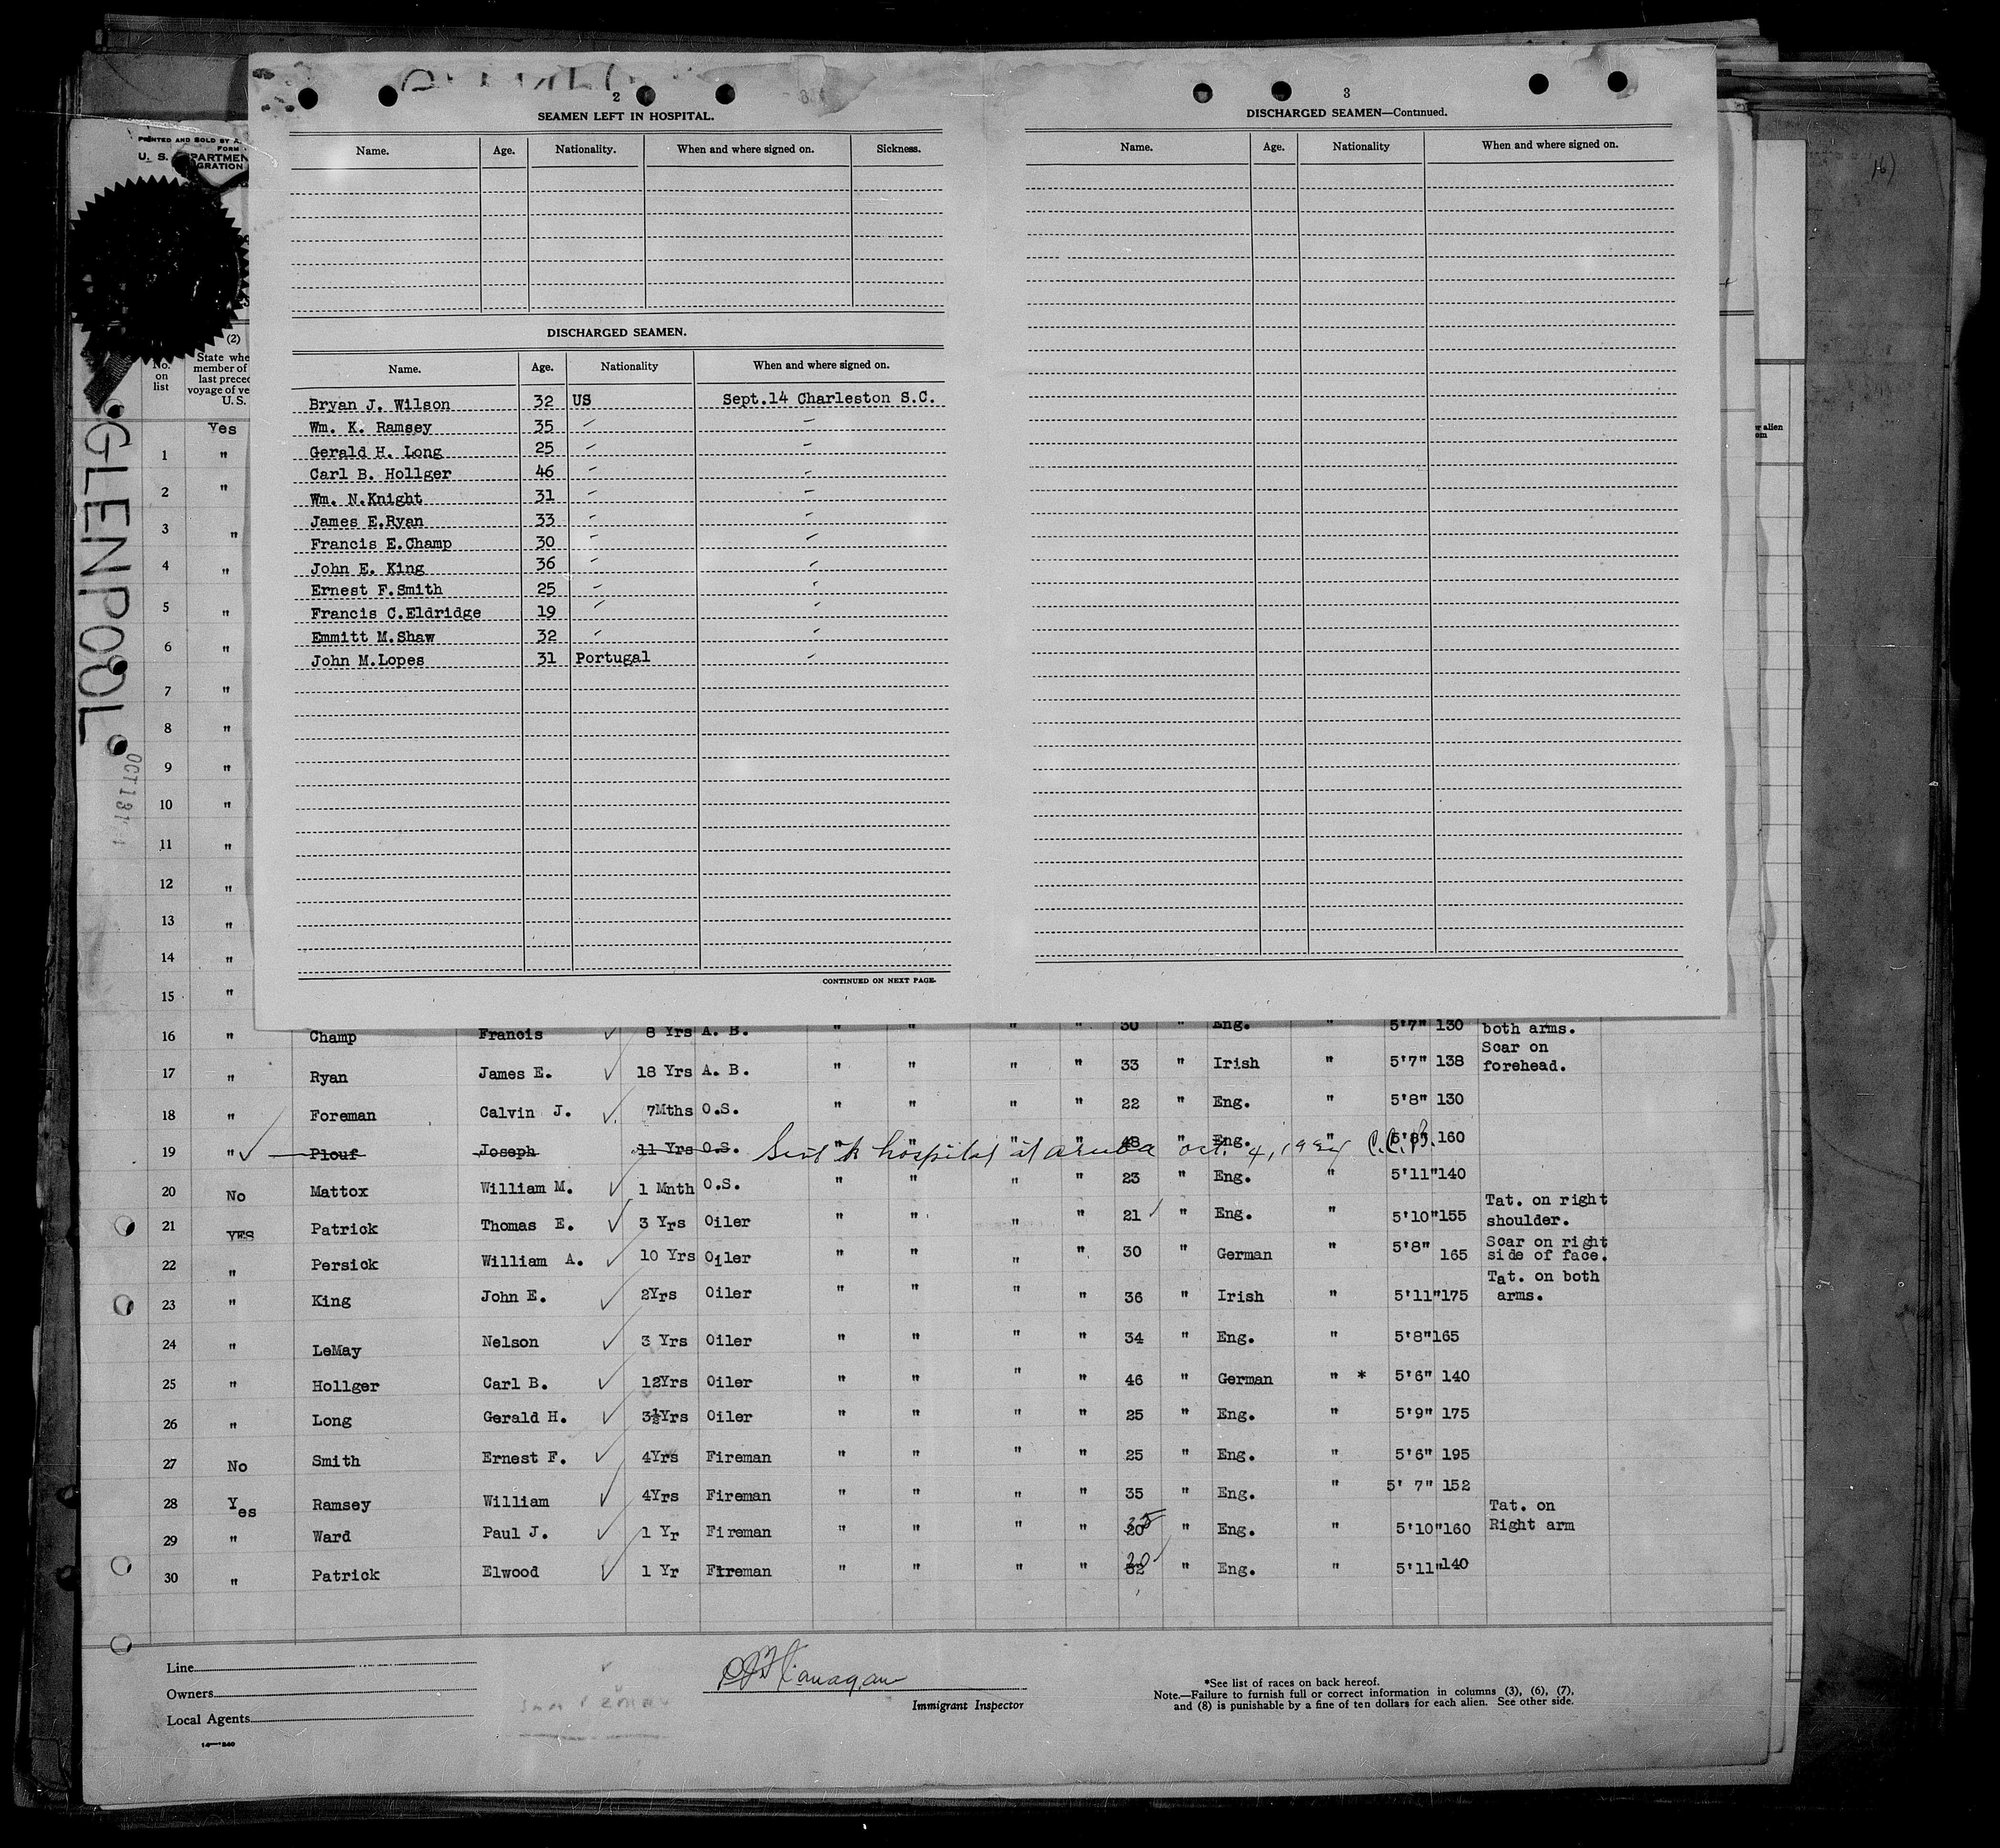 2
SEAMEN LEFT IN HOSPITAL.
Name. Age. Nationality. When and where signed on. Sickness.
DISCHARGED SEAMEN.
Name. Age. Nationality When and where signed on.
Bryan J. Wilson 32 US Sept.14 Charleston S.C.
Wm. K. Ramsey 35 - -
Gerald H. Long 25 - -
Carl B. Hollger 46 - -
Wm. N.Knight 31 - -
James E.Ryan 33 - -
Francis E.Champ 30 - -
John E. King 36 - -
Ernest F.Smith 25 - -
Francis C.Eldridge 19 - -
Emmitt M.Shaw 32 - -
John M.Lopes 31 Portugal -
CONTINUED ON NEXT PAGE.
3
DISCHARGED SEAMEN—Continued.
Name. Age. Nationality When and where signed on.
PRINTED AND SOLD BY
FORM
U. S.
(2)
No. on list
State whe
member of
last preced
voyage of ve
U. S.
GLENPOOL
OCT 13 1
Yes
1 "
2 "
3 "
4 "
5 "
6 "
7 "
8 "
9 "
10 "
11 "
12 "
13 "
14 "
15 "
16 " Champ Francis ✓ 8 Yrs A. B. " " " " 30 " Eng. " 5'7" 130 both arms.
17 " Ryan James E. ✓ 18 Yrs A. B. " " " " 33 " Irish " 5'7" 138 Scar on forehead.
18 " Foreman Calvin J. ✓ 7Mths O.S. " " " " 22 " Eng. " 5'8" 130
19 " ✓ Plouf Joseph 11 Yrs O.S. " " " " 48 " Eng. " 5'8" 160
Sent to hospital at Aruba Oct. 4, 1934
20 No Mattox William M. ✓ 1 Mnth O.S. " " " " 23 " Eng. 5'11" 140
21 YES Patrick Thomas E. ✓ 3 Yrs Oiler " " " " 21 ✓ " Eng. " 5'10" 155 Tat. on right shoulder.
22 " Persick William A. ✓ 10 Yrs Oiler " " " " 30 " German " 5'8" 165 Scar on right side of face.
23 " King John E. ✓ 2Yrs Oiler " " " " 36 " Irish " 5'11" 175 Tat. on both arms.
24 " LeMay Nelson ✓ 3 Yrs Oiler " " " " 34 " Eng. " 5'8" 165
25 " Hollger Carl B. ✓ 12Yrs Oiler " " " " 46 " German " * 5'6" 140
26 " Long Gerald H. ✓ 3½Yrs Oiler " " " " 25 " Eng. " 5'9" 175
27 No Smith Ernest F. ✓ 4Yrs Fireman " " " " 25 " Eng. " 5'6" 195
28 Yes Ramsey William ✓ 4Yrs Fireman " " " " 35 " Eng. " 5' 7" 152
29 " Ward Paul J. ✓ 1 Yr Fireman " " " " " Eng. " 5'10" 160 Tat. on Right arm
30 " Patrick Elwood ✓ 1 Yr Fireman " " " " 20 " Eng. " 5'11" 140
Line
Owners
Local Agents
14—1240
Flanagan
Immigrant Inspector
*See list of races on back hereof.
Note.—Failure to furnish full or correct information in columns (3), (6), (7),
and (8) is punishable by a fine of ten dollars for each alien. See other side.